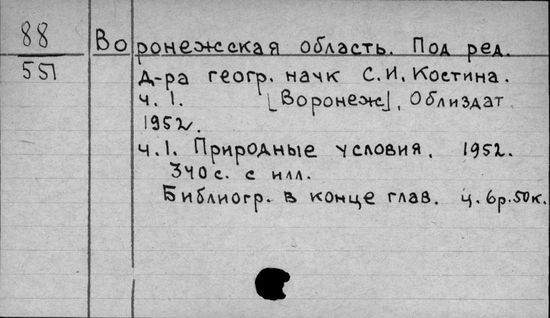 88
551
Воронежская область. Под ред.
д-ра геогр. наук С.И. Костина.
ч. 1. [Воронеж], Облиздат
1952.
ч.1. Природные условия. 1952.
340с. с илл.
Библиогр. в конце глав. ц. 6р.50к.